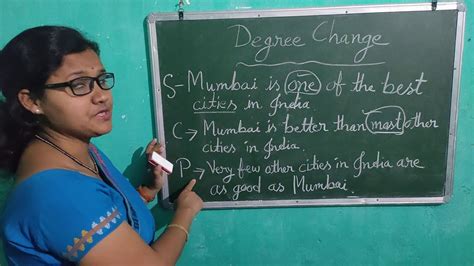 Degree Change
S- Mumbai is one of the best
cities in India
C→ Mumbai is better than most other
cities in India.
P→ Very few other cities in India are
as good as Mumbai.